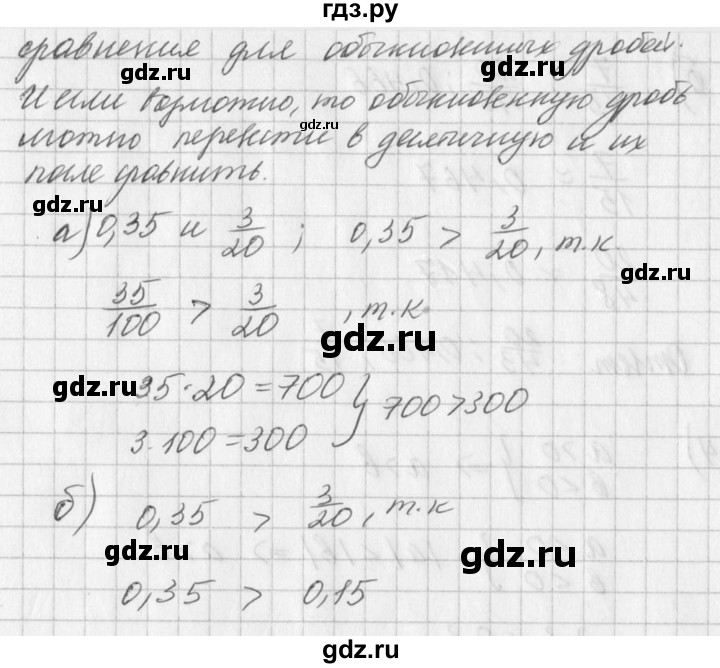 гдз.ру
сравнения для обыкновенных дробей.
И если возможно, то обыкновенную дробь
можно перевести в десятичную и их
после сравнить.
а) 0,35 и 3/20 ; 0,35 > 3/20, т.к.
35/100 > 3/20 , т.к
35·20 = 700
3·100 = 300 } 700 > 300
б) 0,35 > 3/20, т.к
0,35 > 0,15
gdz.ru
gdz.ru
gdz.ru
gdz.ru
gdz.ru
gdz.ru
gdz.ru
gdz.ru
gdz.ru
gdz.ru